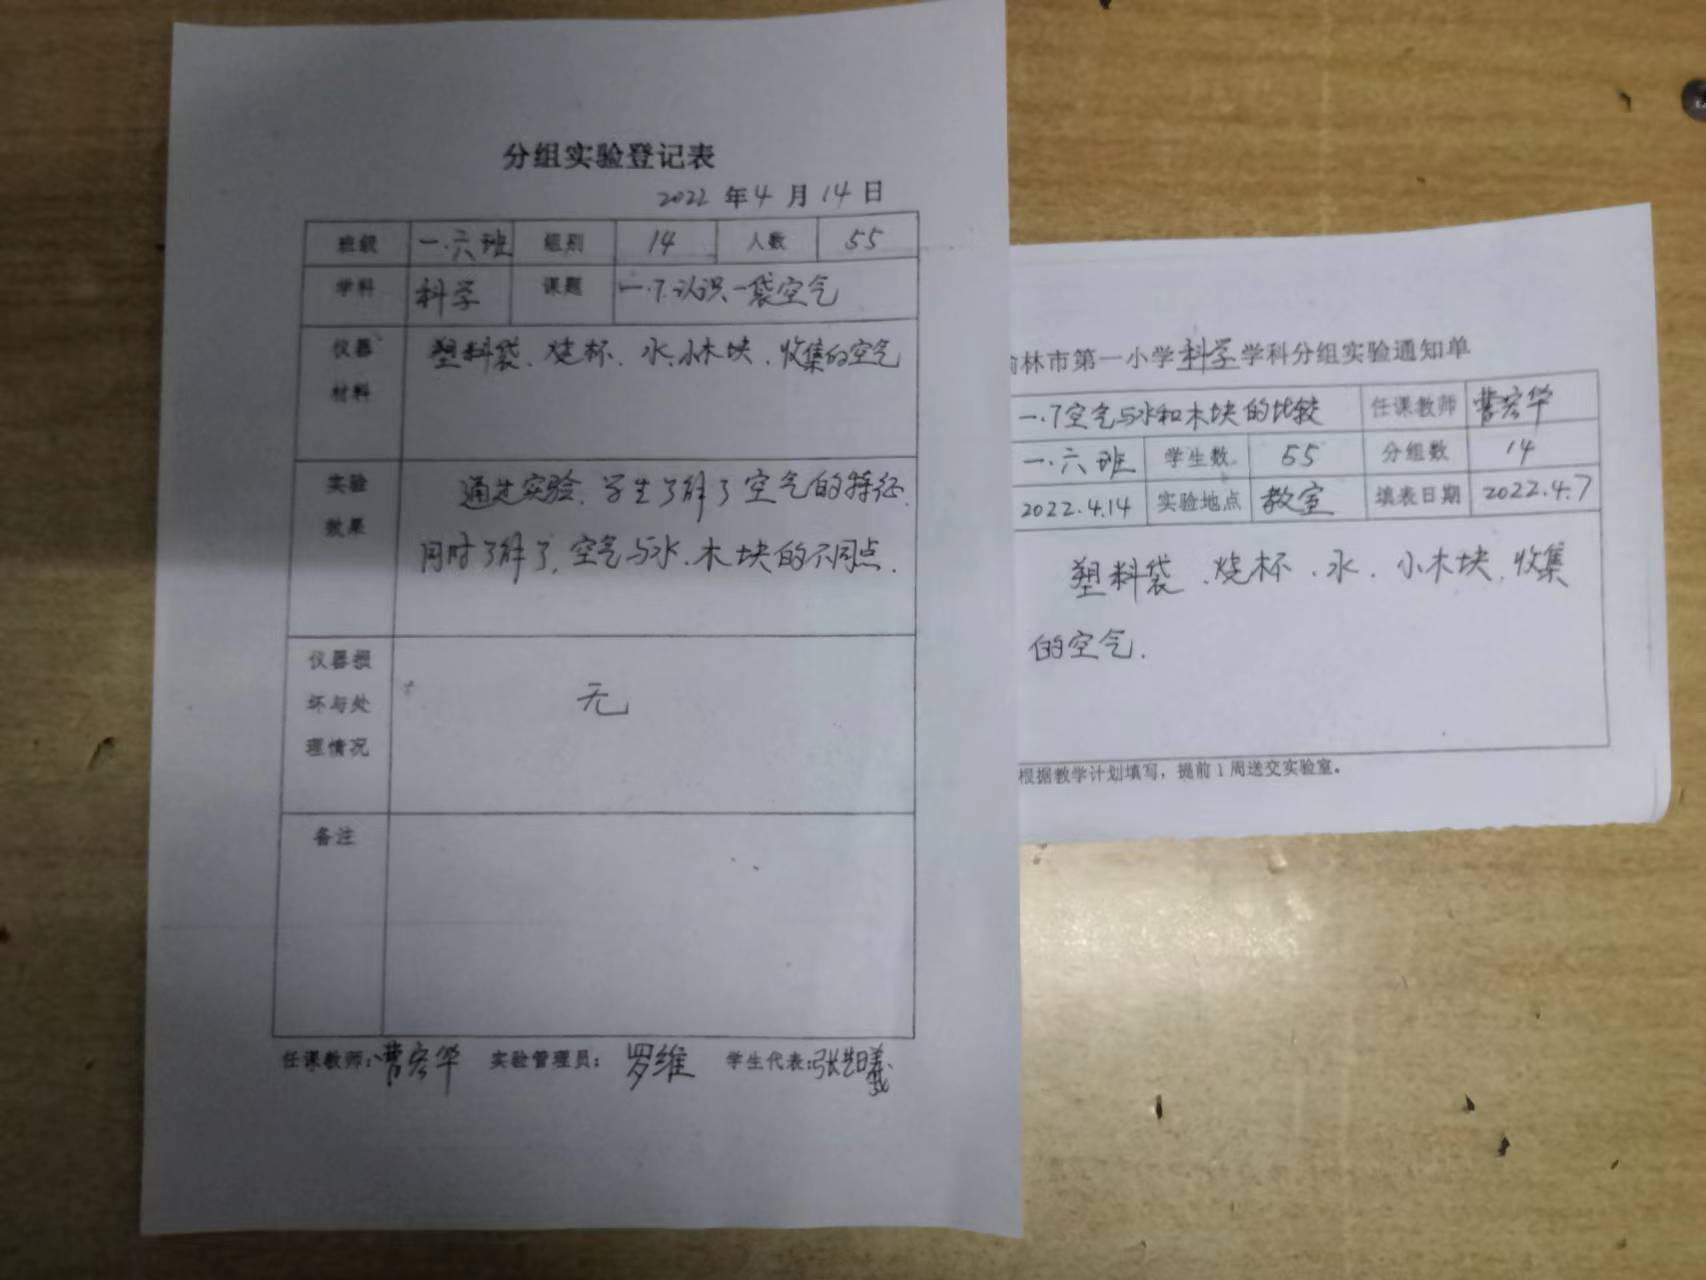 分组实验登记表
2022 年 4 月 14 日
班级 一.六班 组别 14 人数 55
学科 科学 课题 一.7.认识一袋空气
仪器材料 塑料袋、烧杯、水、小木块、收集的空气
实验效果 通过实验,学生了解了空气的特征,
同时了解了,空气与水、木块的不同点.
仪器损坏与处理情况 无
备注
任课教师:曹宏华 实验管理员:罗维 学生代表:张
林市第一小学科学学科分组实验通知单
一.7空气与水和木块的比较 任课教师 曹宏华
一.六班 学生数 55 分组数 14
2022.4.14 实验地点 教室 填表日期 2022.4.7
塑料袋、烧杯、水、小木块、收集
的空气.
根据教学计划填写,提前1周送交实验室。